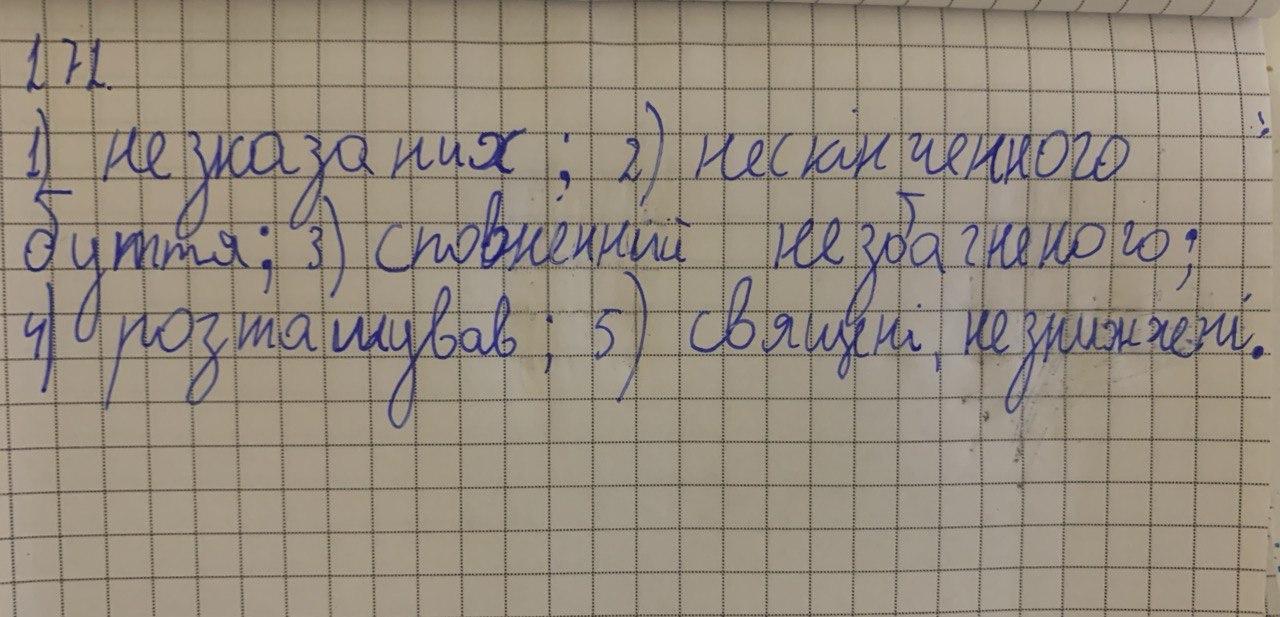 171.
1) незказаних; 2) нескінченного
буття; 3) сповненний незбагненого;
4) розташував; 5) священі, незнижені.